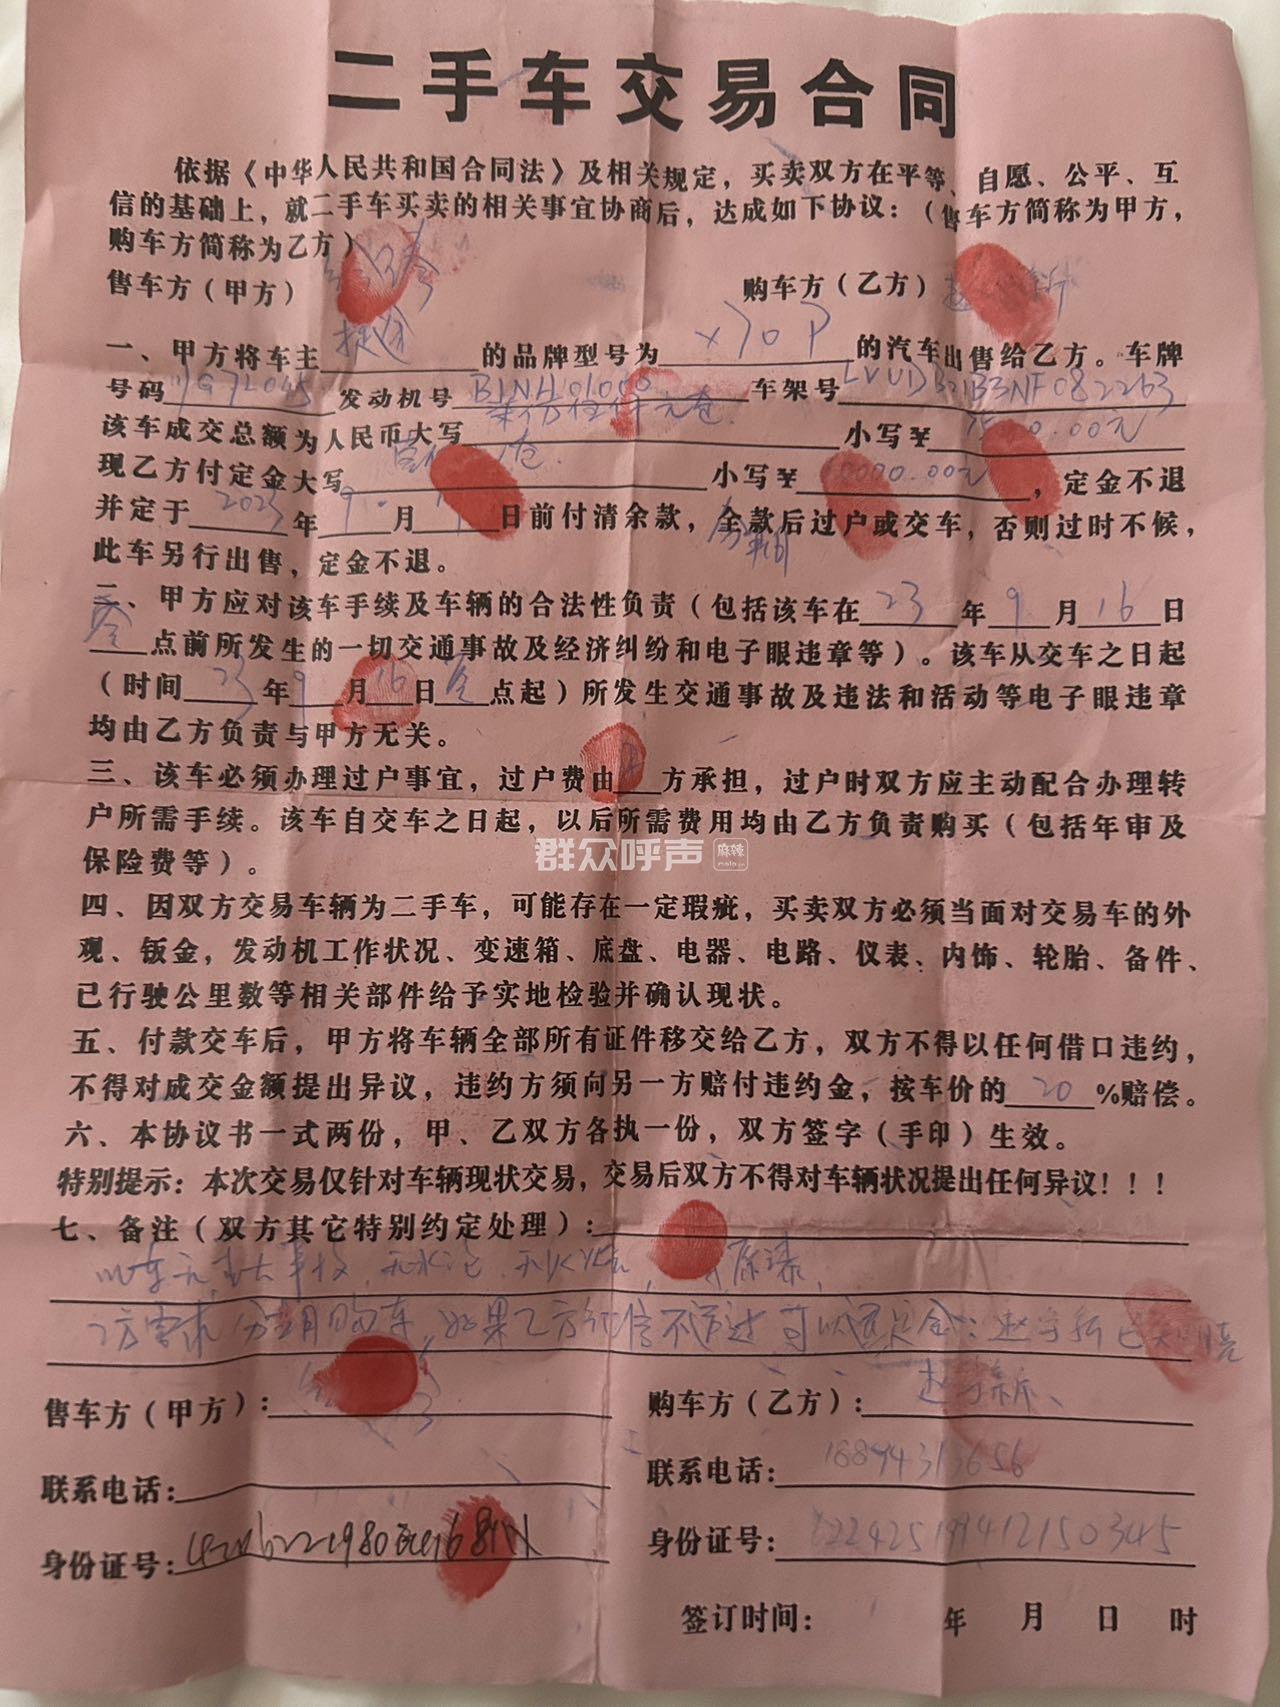 二手车交易合同
依据《中华人民共和国合同法》及相关规定，买卖双方在平等、自愿、公平、互
信的基础上，就二手车买卖的相关事宜协商后，达成如下协议：（售车方简称为甲方，
购车方简称为乙方）
售车方（甲方） 购车方（乙方）
一、甲方将车主 捷途 的品牌型号为 X70P 的汽车出售给乙方。车牌
号码 发动机号 车架号
该车成交总额为人民币大写 小写¥
现乙方付定金大写 小写¥ 0000.00元 ，定金不退
并定于 2023 年 9 月 日前付清余款，全款后过户或交车，否则过时不候，
此车另行出售，定金不退。
二、甲方应对该车手续及车辆的合法性负责（包括该车在 23 年 9 月 16 日
点前所发生的一切交通事故及经济纠纷和电子眼违章等）。该车从交车之日起
（时间 23 年 9 月 16 日 点起）所发生交通事故及违法和活动等电子眼违章
均由乙方负责与甲方无关。
三、该车必须办理过户事宜，过户费由 方承担，过户时双方应主动配合办理转
户所需手续。该车自交车之日起，以后所需费用均由乙方负责购买（包括年审及
保险费等）。
群众呼声 麻辣
四、因双方交易车辆为二手车，可能存在一定瑕疵，买卖双方必须当面对交易车的外
观、钣金，发动机工作状况、变速箱、底盘、电器、电路、仪表、内饰、轮胎、备件、
已行驶公里数等相关部件给予实地检验并确认现状。
五、付款交车后，甲方将车辆全部所有证件移交给乙方，双方不得以任何借口违约，
不得对成交金额提出异议，违约方须向另一方赔付违约金，按车价的 20 %赔偿。
六、本协议书一式两份，甲、乙双方各执一份，双方签字（手印）生效。
特别提示：本次交易仅针对车辆现状交易，交易后双方不得对车辆状况提出任何异议！！！
七、备注（双方其它特别约定处理）：
此车无重大事故，无水泡，无火烧， 原漆，
乙方需求 购车，如果乙方征信不通过可以退定金：
售车方（甲方）： 购车方（乙方）：
联系电话： 联系电话：18894313656
身份证号： 身份证号：
签订时间： 年 月 日 时